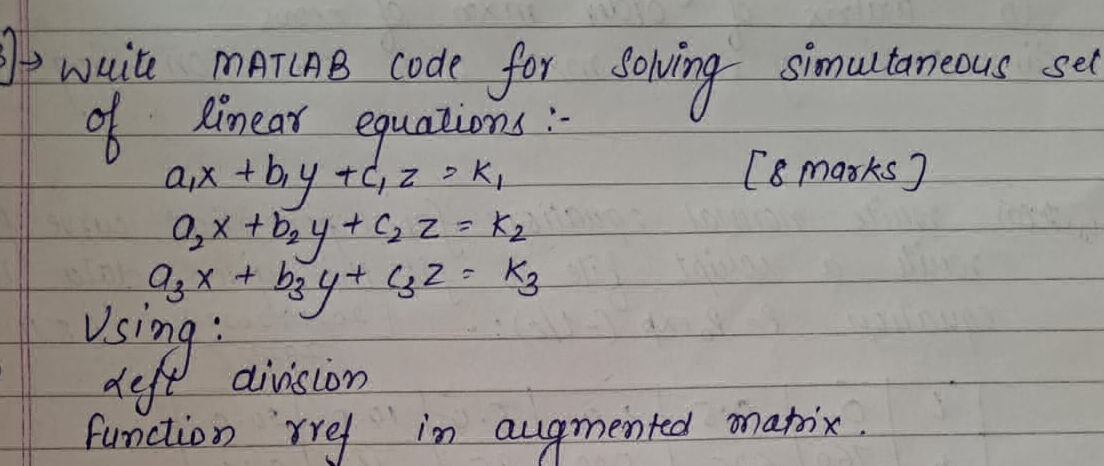 write MATLAB code for solving simultaneous set
of linear equations :-
a₁x + b₁y + c₁z = k₁ [8 marks]
a₂x + b₂y + c₂z = k₂
a₃x + b₃y + c₃z = k₃
Using :
Left division
function rref in augmented matrix.